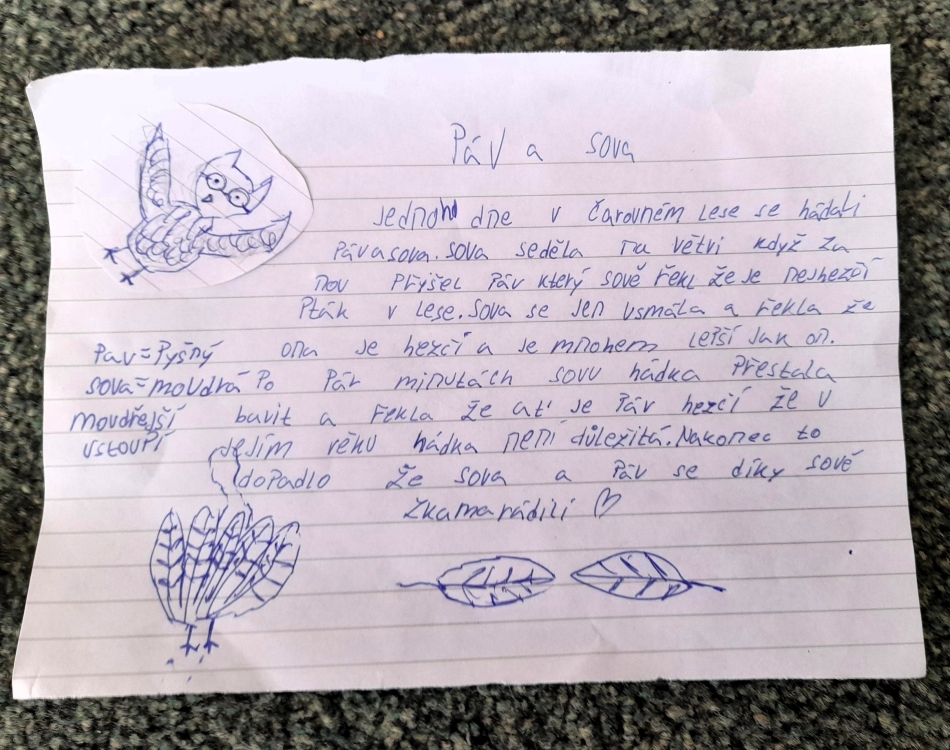 Páv a sova
Jednoho dne v čarovném lese se hádali
páv a sova. Sova seděla na větvi když za
nou přyšel páv který sově řekl že je nejhezčí
pták v lese. Sova se jen usmála a řekla že
ona je hezčí a je mnohem letší jak on.
Po pár minutách sovu hádka přestala
bavit a řekla že ať je páv hezčí že v
jejím věku hádka není důležitá. Nakonec to
dopadlo že sova a páv se díky sově
zkamarádili ♡
Pav=Pyšný
sova=moudrá
moudřejší
ustoupí